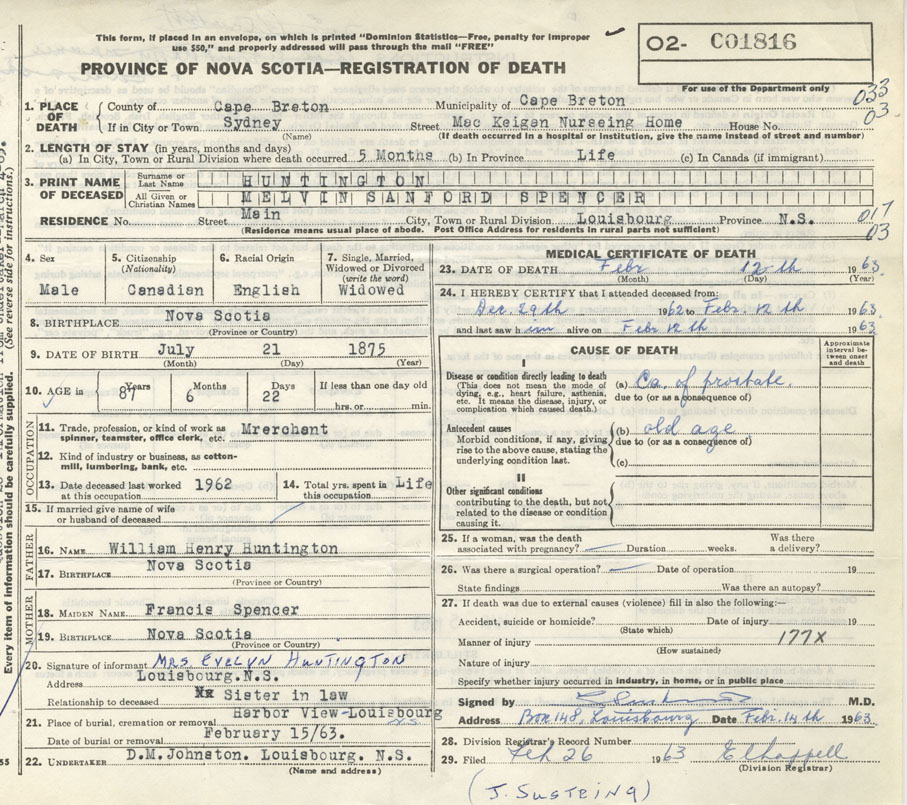 This form, if placed in an envelope, on which is printed "Dominion Statistics—Free, penalty for improper
use $50," and properly addressed will pass through the mail "FREE"
O2- C01816
PROVINCE OF NOVA SCOTIA—REGISTRATION OF DEATH
For use of the Department only
033
03
1. PLACE OF DEATH County of Cape Breton Municipality of Cape Breton
If in City or Town Sydney Street Mac Keigan Nurseing Home House No.
(Name) (If death occurred in a hospital or institution, give the name instead of street and number)
2. LENGTH OF STAY (in years, months and days)
(a) In City, Town or Rural Division where death occurred 5 Months (b) In Province Life (c) In Canada (if immigrant)
3. PRINT NAME OF DECEASED
Surname or Last Name HUNTINGTON
All Given or Christian Names MELVIN SANFORD SPENCER
RESIDENCE No. Street Main City, Town or Rural Division Louisbourg Province N.S.
(Residence means usual place of abode. Post Office Address for residents in rural parts not sufficient)
017
03
4. Sex Male
5. Citizenship (Nationality) Canadian
6. Racial Origin English
7. Single, Married, Widowed or Divorced (write the word) Widowed
8. BIRTHPLACE Nova Scotia
(Province or Country)
9. DATE OF BIRTH July 21 1875
(Month) (Day) (Year)
10. AGE in Years 87 Months 6 Days 22 If less than one day old
hrs. or min.
OCCUPATION
11. Trade, profession, or kind of work as spinner, teamster, office clerk, etc. Mrerchant
12. Kind of industry or business, as cotton-mill, lumbering, bank, etc.
13. Date deceased last worked at this occupation 1962 14. Total yrs. spent in this occupation Life
15. If married give name of wife
or husband of deceased
FATHER
16. NAME William Henry Huntington
17. BIRTHPLACE Nova Scotia
(Province or Country)
MOTHER
18. MAIDEN NAME Francis Spencer
19. BIRTHPLACE Nova Scotia
(Province or Country)
20. Signature of informant MRS EVELYN HUNTINGTON
Address Louisbourg.N.S.
Relationship to deceased Sister in law
21. Place of burial, cremation or removal Harbor View-Louisbourg
Date of burial or removal February 15/63.
22. UNDERTAKER D.M.Johnston. Louisbourg. N.S.
(Name and address)
MEDICAL CERTIFICATE OF DEATH
23. DATE OF DEATH Febr 12th 1963
(Month) (Day) (Year)
24. I HEREBY CERTIFY that I attended deceased from:
Dec. 29th 1962 to Febr. 12th 1963
and last saw him alive on Febr 12th 1963
CAUSE OF DEATH
Approximate interval between onset and death
I
Disease or condition directly leading to death
(This does not mean the mode of dying, e.g., heart failure, asthenia, etc. It means the disease, injury, or complication which caused death.)
(a) Ca. of prostate.
due to (or as a consequence of)
Antecedent causes
Morbid conditions, if any, giving rise to the above cause, stating the underlying condition last.
(b) old age
due to (or as a consequence of)
(c)
II
Other significant conditions
contributing to the death, but not related to the disease or condition causing it.
25. If a woman, was the death associated with pregnancy? Duration weeks. Was there a delivery?
26. Was there a surgical operation? Date of operation 19
State findings Was there an autopsy?
27. If death was due to external causes (violence) fill in also the following:—
Accident, suicide or homicide? Date of injury 19
(State which)
Manner of injury 177X
(How sustained)
Nature of injury
Specify whether injury occurred in industry, in home, or in public place
Signed by M.D.
Address Box 148, Louisbourg Date Febr. 14th 1963
28. Division Registrar's Record Number
29. Filed Feb 26 1963
(Division Registrar)
Every item of information should be carefully supplied. (See reverse side for instructions.)